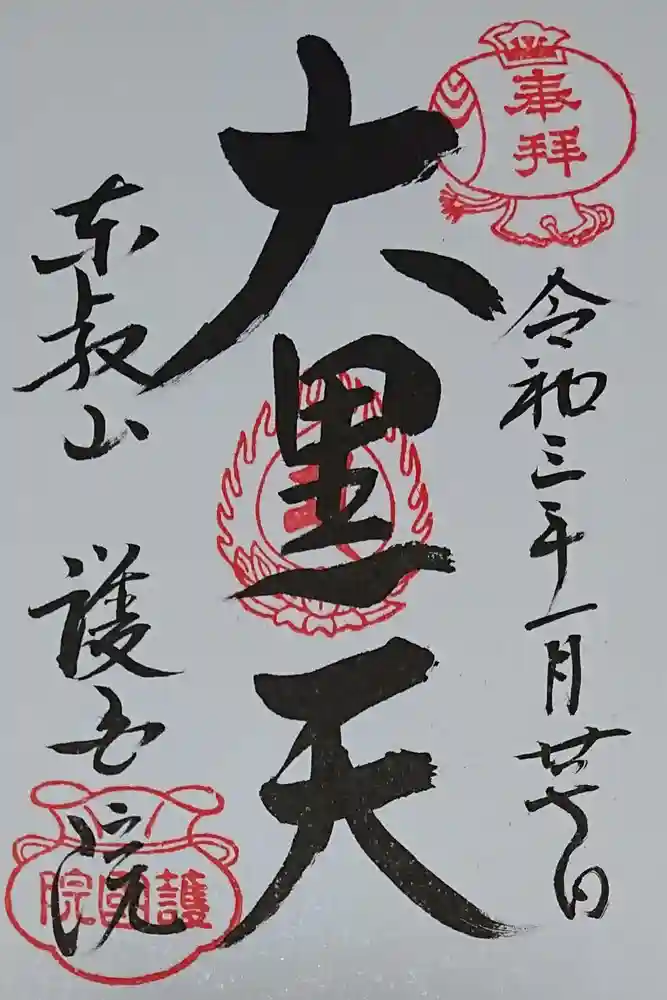 奉拝
令和三年一月廿七日
大黒天
東叡山 護国院
護国院